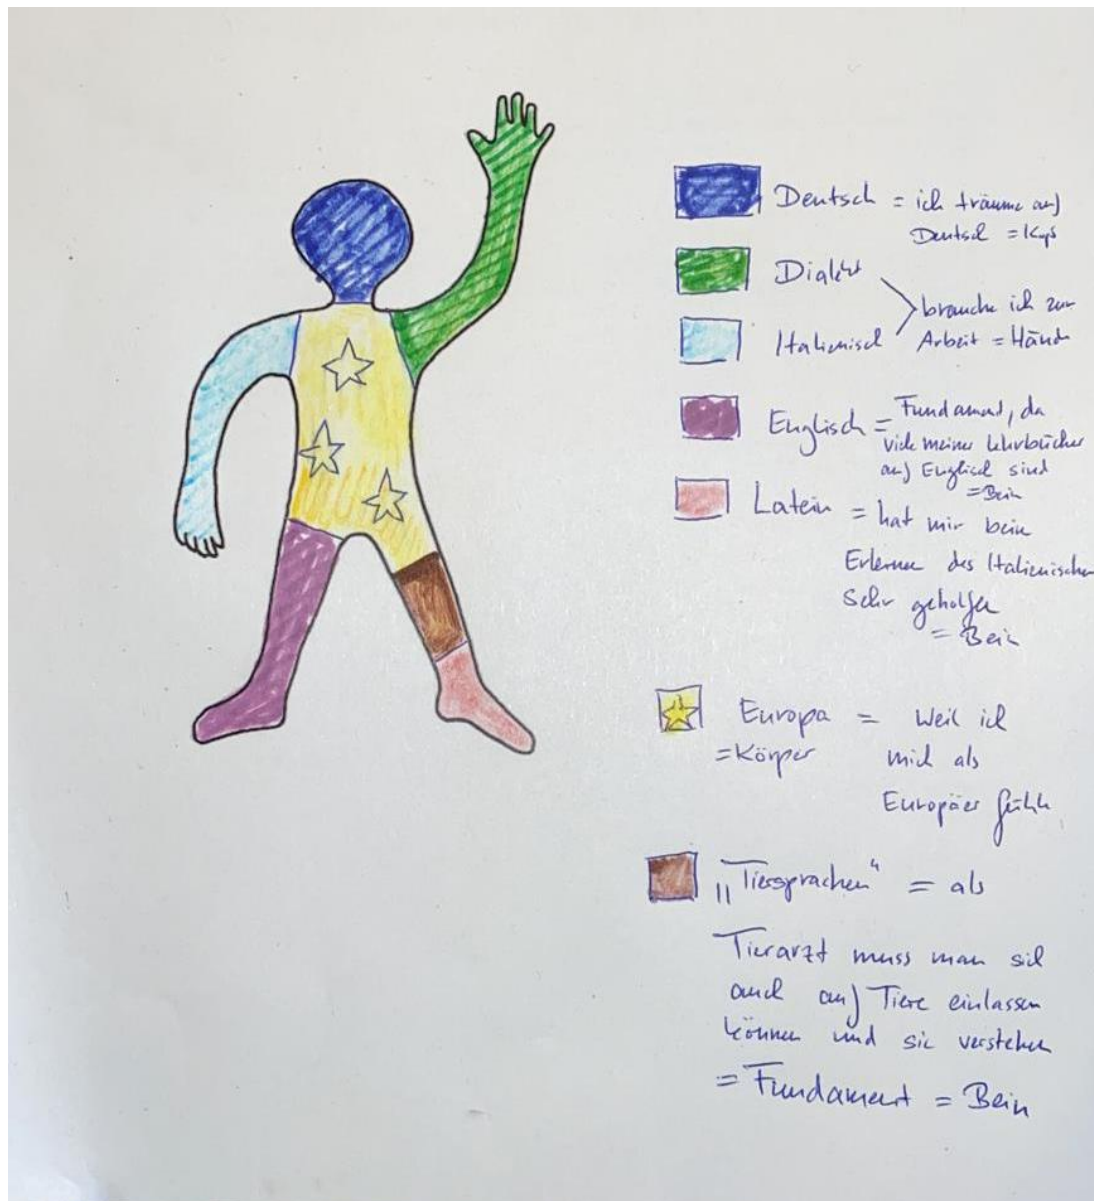 Deutsch = ich träume auf
Deutsch = Kopf
Dialekt
brauche ich zur
Italienisch Arbeit = Hände
Englisch = Fundament, da
viele meiner Lehrbücher
auf Englisch sind
= Bein
Latein = hat mir beim
Erlernen des Italienischen
Sehr geholfen
= Bein
Europa = Weil ich
= Körper mich als
Europäer fühle
"Tiersprachen" = als
Tierarzt muss man sich
auch auf Tiere einlassen
können und sie verstehen
= Fundament = Bein